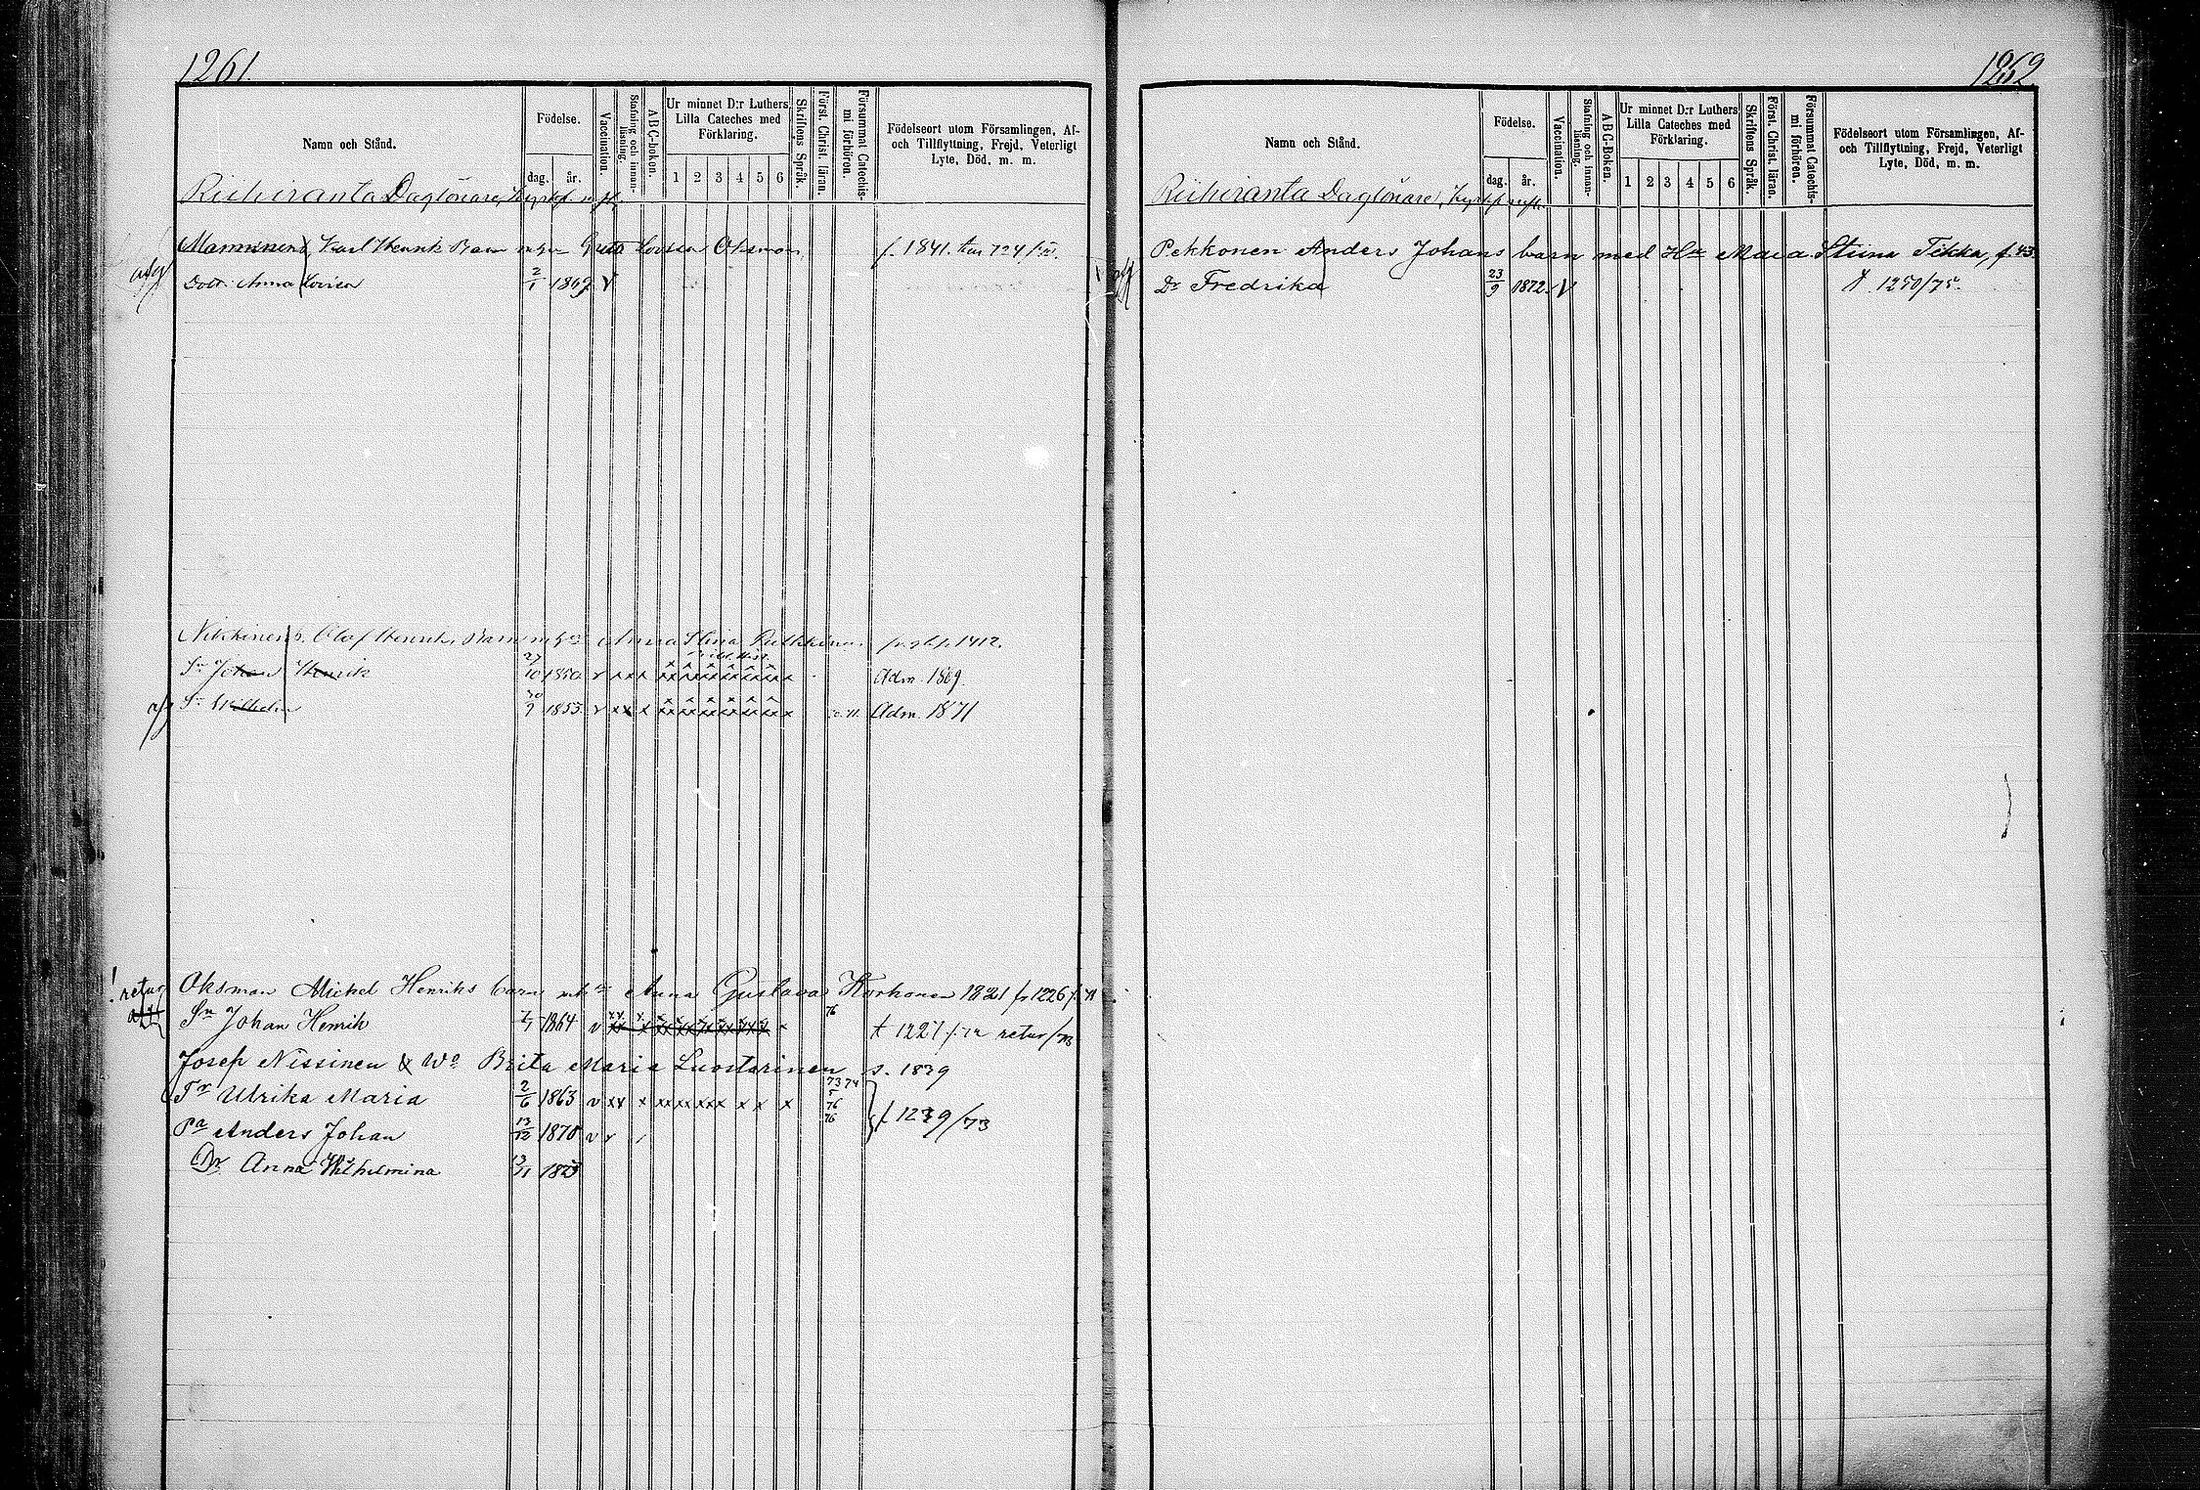 1261.
Namn och Stånd.
Födelse.
dag. år.
Vaccination.
Stafning och innanläsning.
ABC-boken.
Ur minnet D:r Luthers Lilla Cateches med Förklaring.
1 2 3 4 5 6
Skriftens Språk.
Först. Christ. läran.
Försummat Catechismi förhören.
Födelseort utom Församlingen, Af-
och Tillflyttning, Frejd, Veterligt
Lyte, Död, m. m.
Riihiranta Daglönare,
Manninen, Karl Henrik Barn Greta Lovisa Oksman f. 1841.
afg Dott. Anna Lovisa 2/1 1869 V
Nikkinen Olof Henrik, Barn Anna Stina
Sn Johan Henrik 27/10 1850 Adm. 1869.
afg Sn Wilhelm 30/9 1853 Adm. 1871
! retur Oksman Mickel Henriks barn Anna Gustava Korhonen 1821 fr 1226
Sn Johan Henrik 7/7 1864 v 76 t 1227 retur/73
Josep Nissinen & Wa Brita Maria Luostarinen s. 1839
Tr Ulrika Maria 2/6 1863 v 73 74 5 76 76
Pa Anders Johan 13/12 1870 v f 1239/73
Dr Anna Wilhelmina 13/11 1873
1262
Namn och Stånd.
Födelse.
dag. år.
Vaccination.
Stafning och innanläsning.
ABC-Boken.
Ur minnet D:r Luthers Lilla Cateches med Förklaring.
1 2 3 4 5 6
Skriftens Språk.
Först. Christ. läran.
Försummat Catechismi förhören.
Födelseort utom Församlingen, Af-
och Tillflyttning, Frejd, Veterligt
Lyte, Död, m. m.
Riihiranta Daglönare,
Pekkonen Anders Johans barn med Hu Maia Stina Tikka, f. 43
afg Dr Fredrika 23/9 1872. V f. 1250/75.